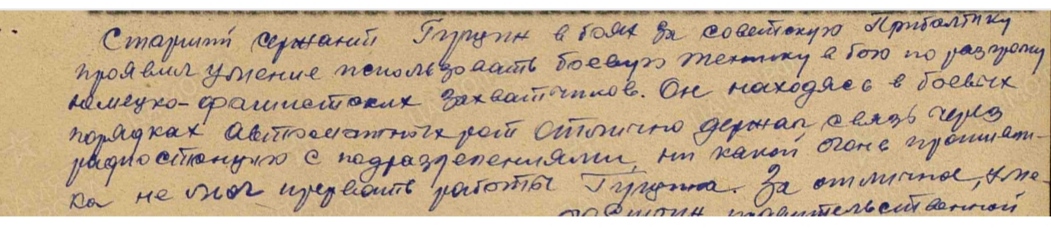 Старший сержант Гущин в боях за советскую Прибалтику
проявил умение использовать боевую технику в бою по разгрому
немецко-фашистских захватчиков. Он находясь в боевых
порядках автоматных рот отлично держал связь через
радиостанцию с подразделениями, ни какой огонь противни-
ка не мог прервать работы Гущина. За отличное, уме-
достоин правительственной